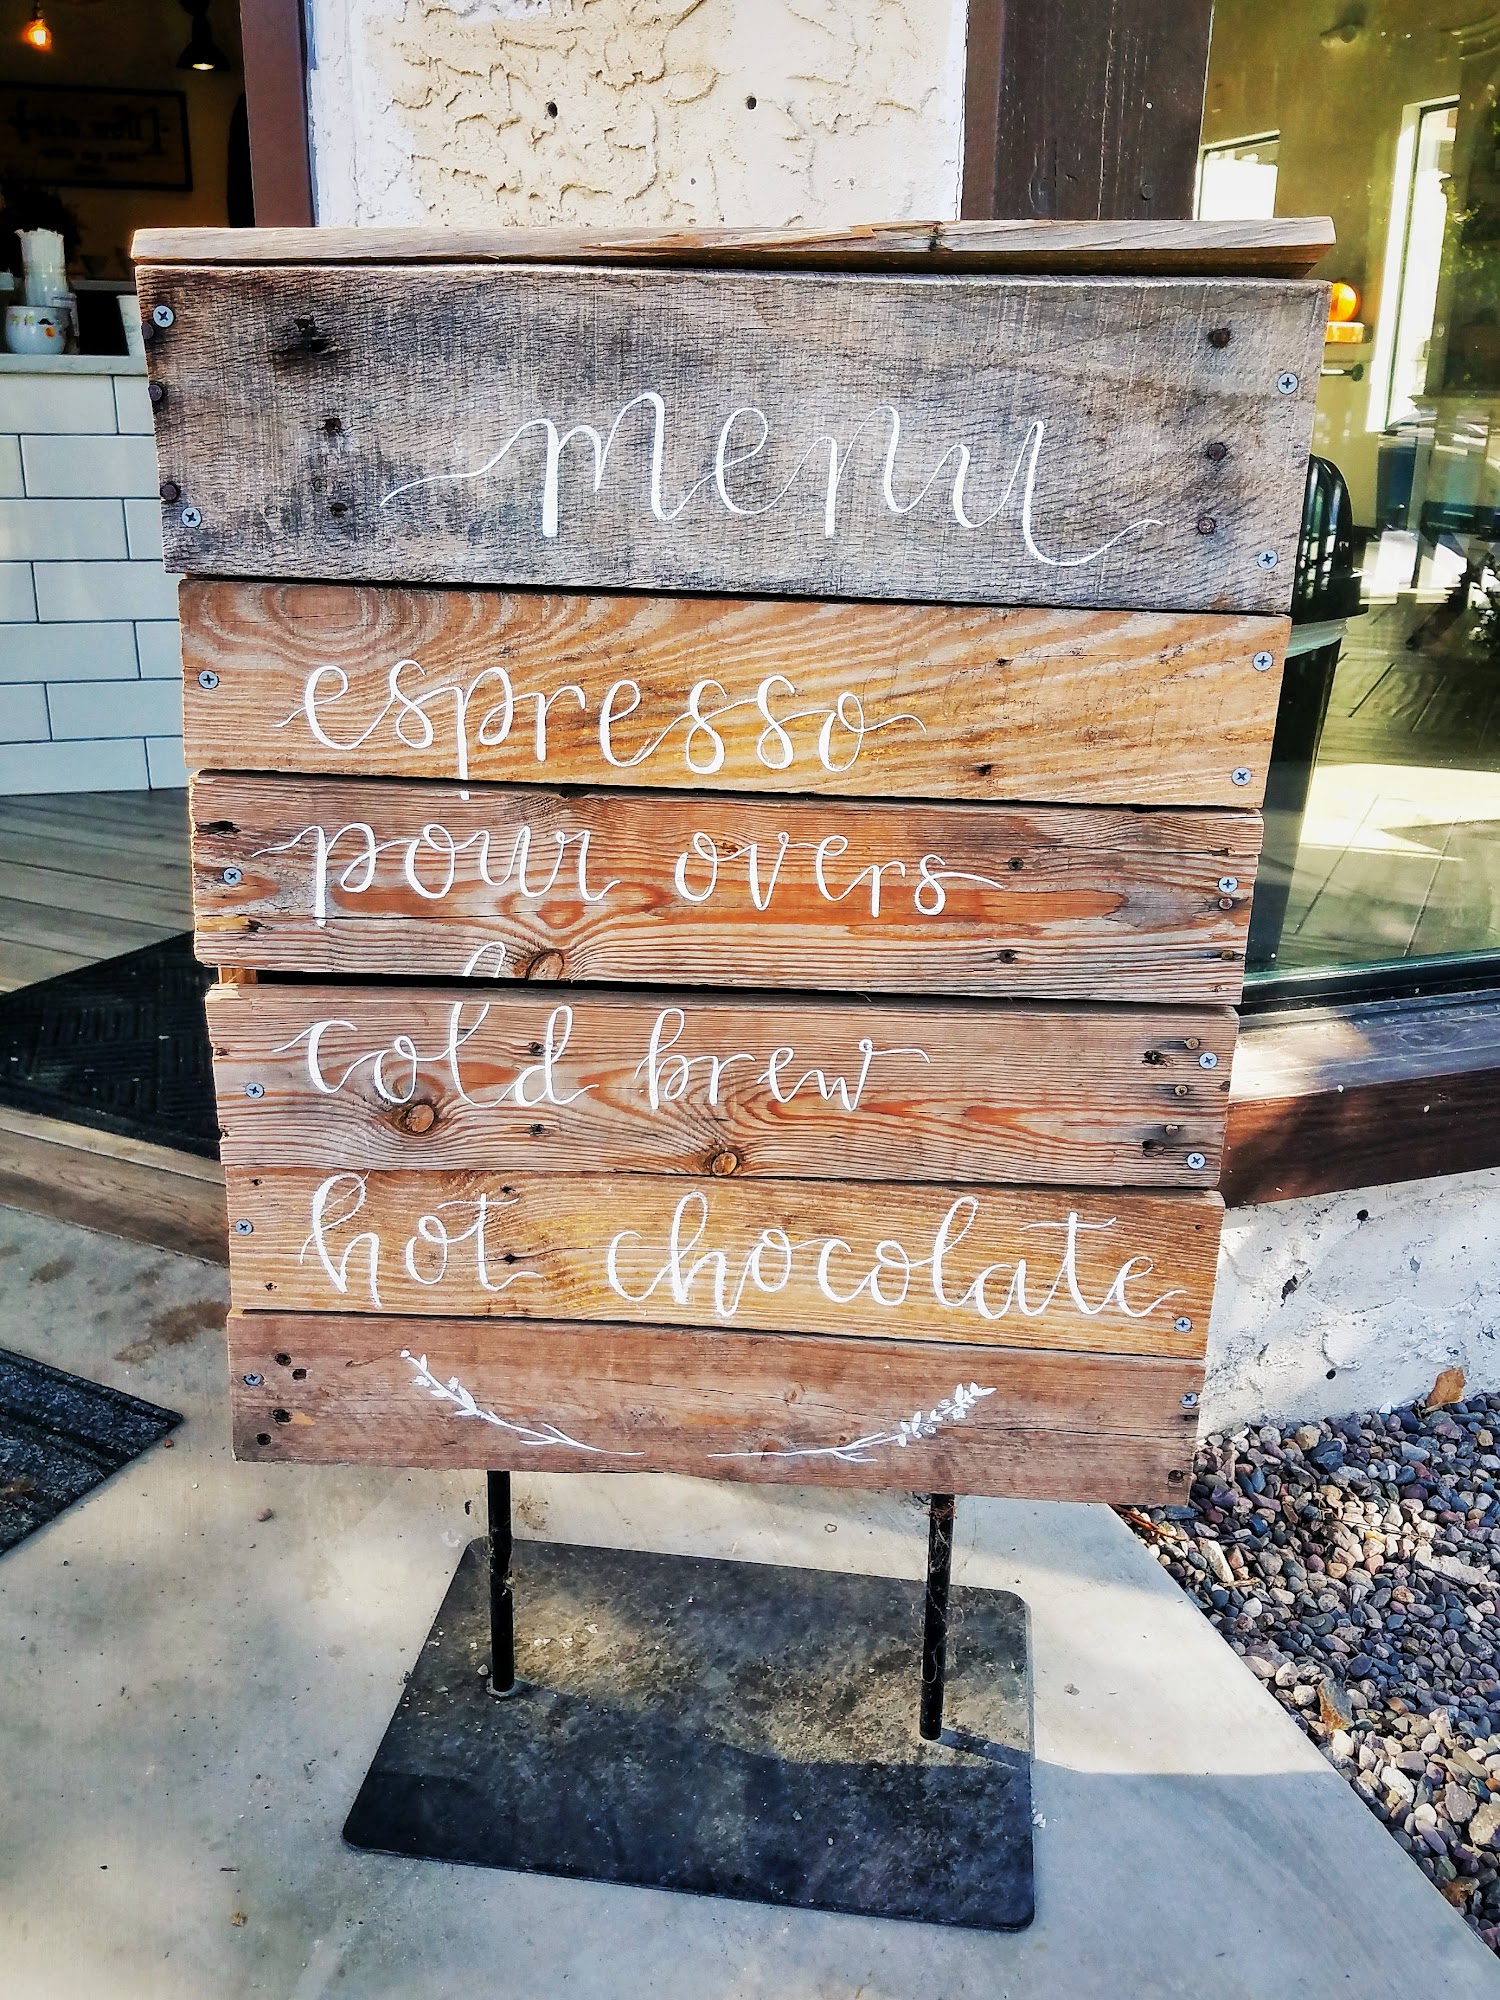 menu
espresso
pour overs
cold brew
hot chocolate